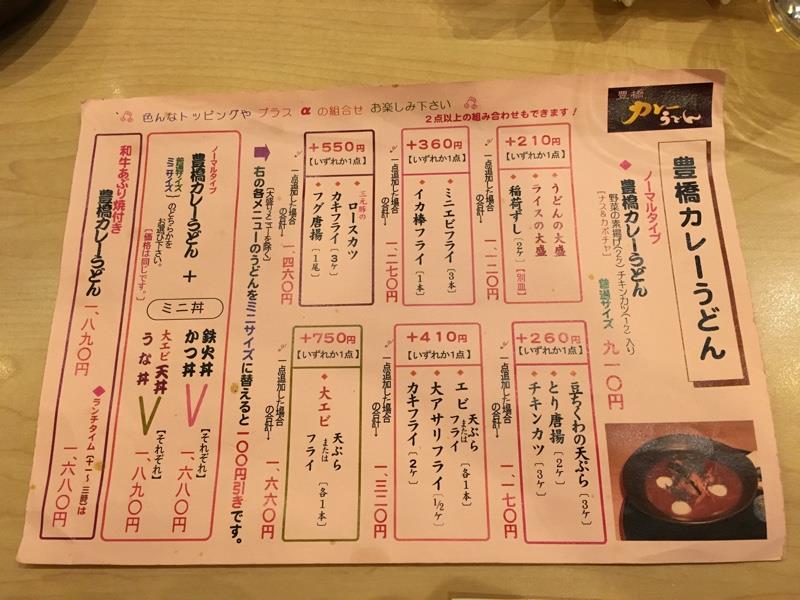 色んなトッピングや プラス α の組合せ お楽しみ下さい
2点以上の組み合わせもできます!
豊橋
カレーうどん
豊橋カレーうどん
◆ノーマルタイプ
豊橋カレーうどん
野菜の素揚げ(2ケ)チキンカツ(1ケ)入り
[ナス&カボチャ]
普通サイズ 九一〇円
+210円
【いずれか1点】
うどんの大盛
ライスの大盛
稲荷ずし[2ケ][別皿]
一点追加した場合の合計→ 一、一二〇円
+360円
【いずれか1点】
ミニエビフライ[3本]
イカ棒フライ[1本]
一点追加した場合の合計→ 一、二七〇円
+550円
【いずれか1点】
三元豚の
ロースカツ
カキフライ[3ケ]
フグ唐揚[1尾]
一点追加した場合の合計→ 一、四六〇円
+260円
【いずれか1点】
豆ちくわの天ぷら[3ケ]
とり唐揚[2ケ]
チキンカツ[3ケ]
一点追加した場合の合計→ 一、一七〇円
+410円
【いずれか1点】
エビ 天ぷら または フライ[各1本]
大アサリフライ[1/2ケ]
カキフライ[2ケ]
一点追加した場合の合計→ 一、三二〇円
+750円
【いずれか1点】
大エビ 天ぷら または フライ[各1本]
一点追加した場合の合計→ 一、六六〇円
➡右の各メニューのうどんをミニサイズに替えると一〇〇円引きです。
[大盛りメニューを除く]
ノーマルタイプ
豊橋カレーうどん + ミニ丼
普通サイズ
ミニサイズ
のどちらかを
お選び下さい。
[価格は同じです。]
鉄火丼
かつ丼
[それぞれ]
一、六八〇円
大エビ天丼
うな丼
[それぞれ]
一、八九〇円
和牛あぶり焼付き
豊橋カレーうどん 一、八九〇円
◆ランチタイム[十一〜三時]は
一、六八〇円